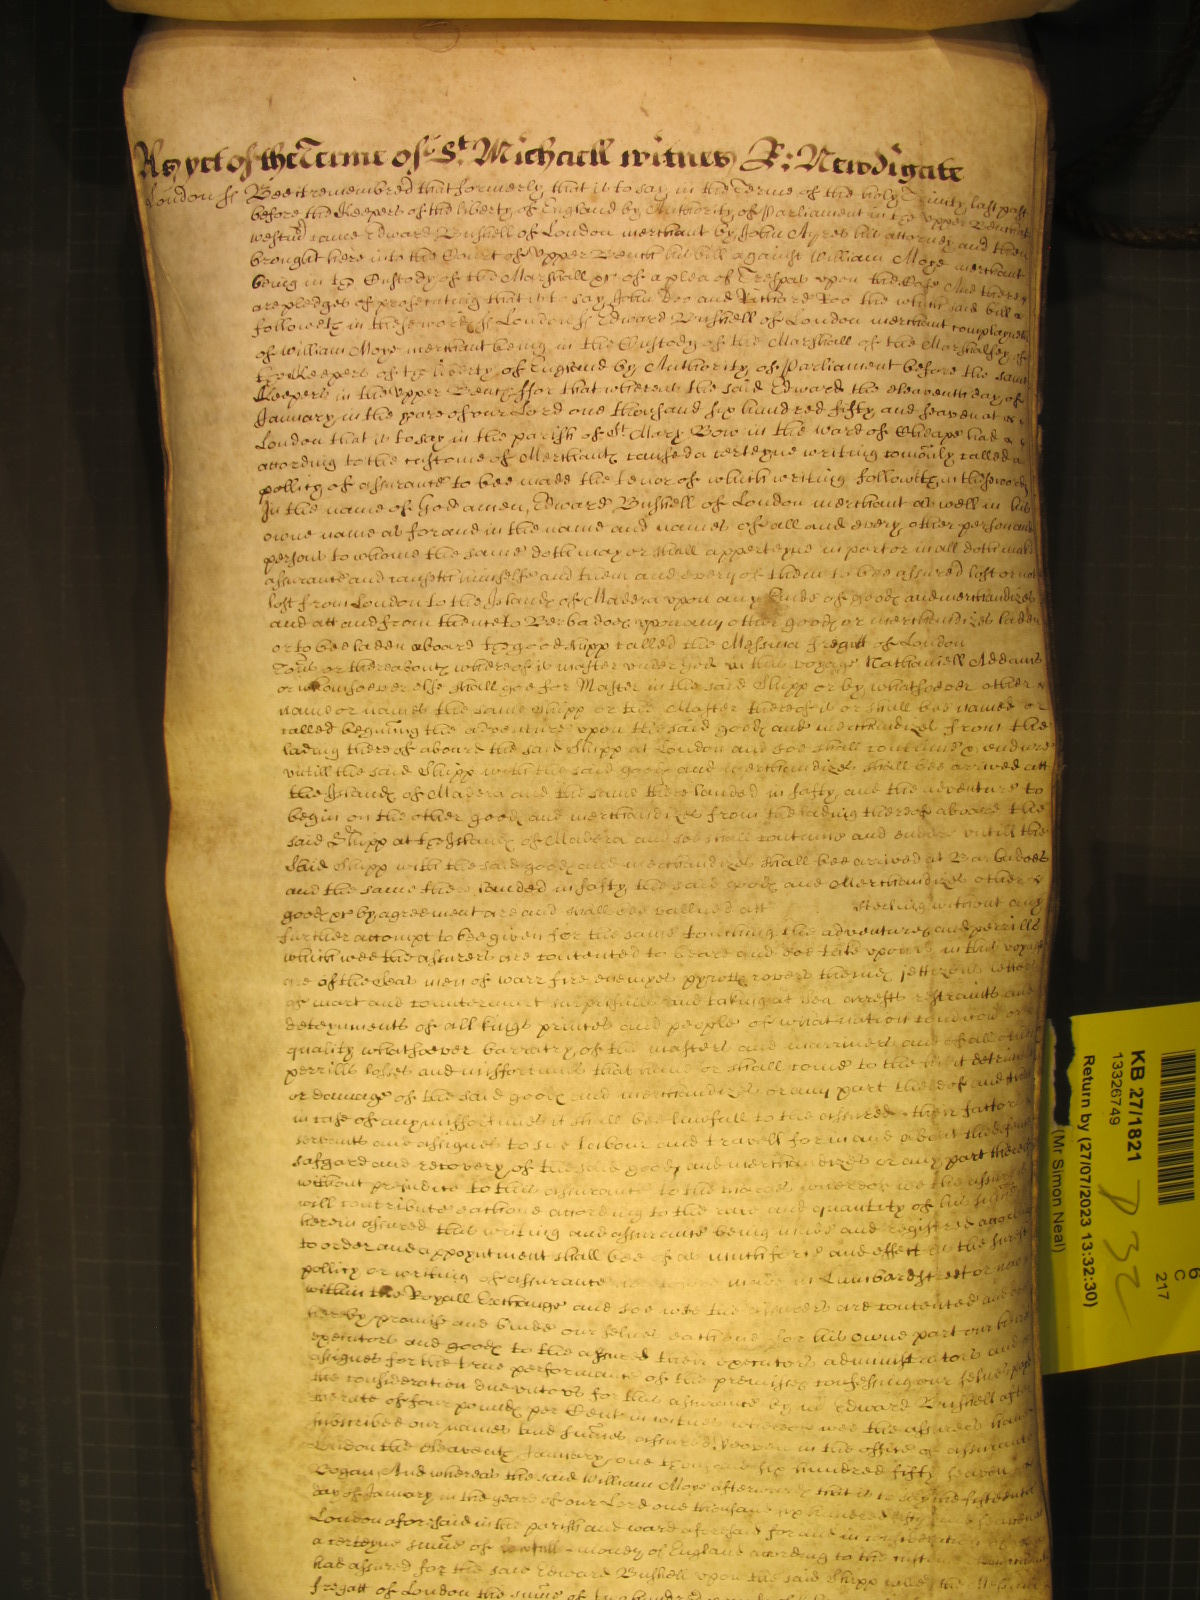 As yet of the Terme of St Michaell witnes R: Newdigate
London ss Bee it remembred that formerly that is to say in the Terme of the holy Trinity last past
before the Keepers of the liberty of England by Authority of Parliament in the upper Bench at
westmr came Edward Bushell of London merchant by John Ayres his attorney and then
brought here into the Court of Upper Bench his bill against William Moye merchant
being in the Custody of the Marshall &c of a plea of Trespas upon the Case And there
are pledges of prosecuting that is to say John Doo and Richard Roo the which said bill
followeth in these words ss London ss Edward Bushell of London merchant complayneth
of William Moye merchant being in the Custody of the Marshall of the Marshalsey of
the Keepers of the liberty of England by Authority of Parliament before the same
Keepers in the Upper Bench ffor that whereas the said Edward the eleaventh day of
January in the yeare of our Lord one thousand six hundred fifty and seaven at
London that is to say in the parish of St Mary Bow in the ward of Cheape had
according to the custome of Merchants caused a certeyne writing comonly called a
pollicy of assurance to bee made the tenor of which writing followeth in these words
In the name of God amen, Edward Bushell of London merchant as well in his
owne name as for and in the name and names of all and every other person and
persons to whome the same doth may or shall apperteyne in part or in all doth make
assurance and causeth himselfe and them and every of them to bee assured lost or not
lost from London to the Islands of Madera upon any kinde of goods and merchandizes
and att and from thence to Barbadoes upon any other goods or merchandizes laden
or to bee laden aboard the good shipp called the Messina Fregatt of London
Tons or thereabouts whereof is master under god in this voyage Nathaniell Addams
or whomsoever else shall goe for Master in the said Shipp or by whatsoever other
name or names the same Shipp or the Master thereof is or shall bee named or
called begining the adventure upon the said goods and merchandizes from the
lading thereof aboard the said Shipp at London and soe shall continue & endure
untill the said Shipp with the said goods and merchandizes shall bee arrived att
the Islands of Madera and the same there landed in safty and the adventure to
begin on the other goods and merchandizes from the lading thereof aboard the
said Shipp at the Islands of Madera and soe shall continue and endure untill the
said Shipp with the said goods and merchandizes shall bee arrived at Barbadoes
and the same there landed in safty the said goods and Merchandizes other
goods &c by agreement are and shall bee vallued att sterling without any
further accompt to bee given for the same touching the adventures and perrills
which wee the assurers are contented to beare and doe take upon us in this voyage
are of the Seas men of warr fire enemyes pyratts rovers theeves jettezons letters
of mart and countermart surprisalls and takings at Sea arrests restraints and
deteynments of all kings princes and people of what nation condicion or
quality whatsoever barratry of the masters and marriners and of all other
perrills losses and misfortunes that have or shall come to the hurt detriment
or domage of the said goods and merchandizes or any part thereof and
in case of any misfortunes it shall bee lawfull to the assured their factors
servants and assignes to sue labour and travell for in and about the defence
safgard and recovery of the said goods and merchandizes or any part thereof
without prejudice to this assurance to the charges whereof wee the assurers
will contribute each one according to the rate and quantity of his summe
herein assured this writing and assurance being made and registred according
to order and appoyntment shall bee of as much force and effect as the surest
pollicy or writing of assurance heretofore made in Lumbardstreet or
within the Royall Exchange and soe wee the assurers are contented and doe
hereby promise and binde our selves each one for his owne part our heires
executors and goods to the assured their executors administrators and
assignes for the true performance of the premisses confessing our selves paid
the consideration due unto us for this assurance by Edward Bushell after
the rate of four pounds per Cent in witnes whereof wee the assurers have
subscribed our names and summes assured in the office of assurance
London the eleaventh January one thousand six hundred fifty seaven
And whereas the said William Moye afterwards that is to say the fifteenth
day of January in the yeare of our Lord one thousand six hundred fifty and seaven at
London aforesaid in the parish and ward aforesaid for and in consideration of
a certeyne summe of lawfull money of England according to the custome
had assured for the said Edward Bushell upon the said Shipp called the Messina
Fregatt of London the summe of
KB 27/1821
13326749
Return by (27/07/2023 13:32:30)
(Mr Simon Neal)
C
217